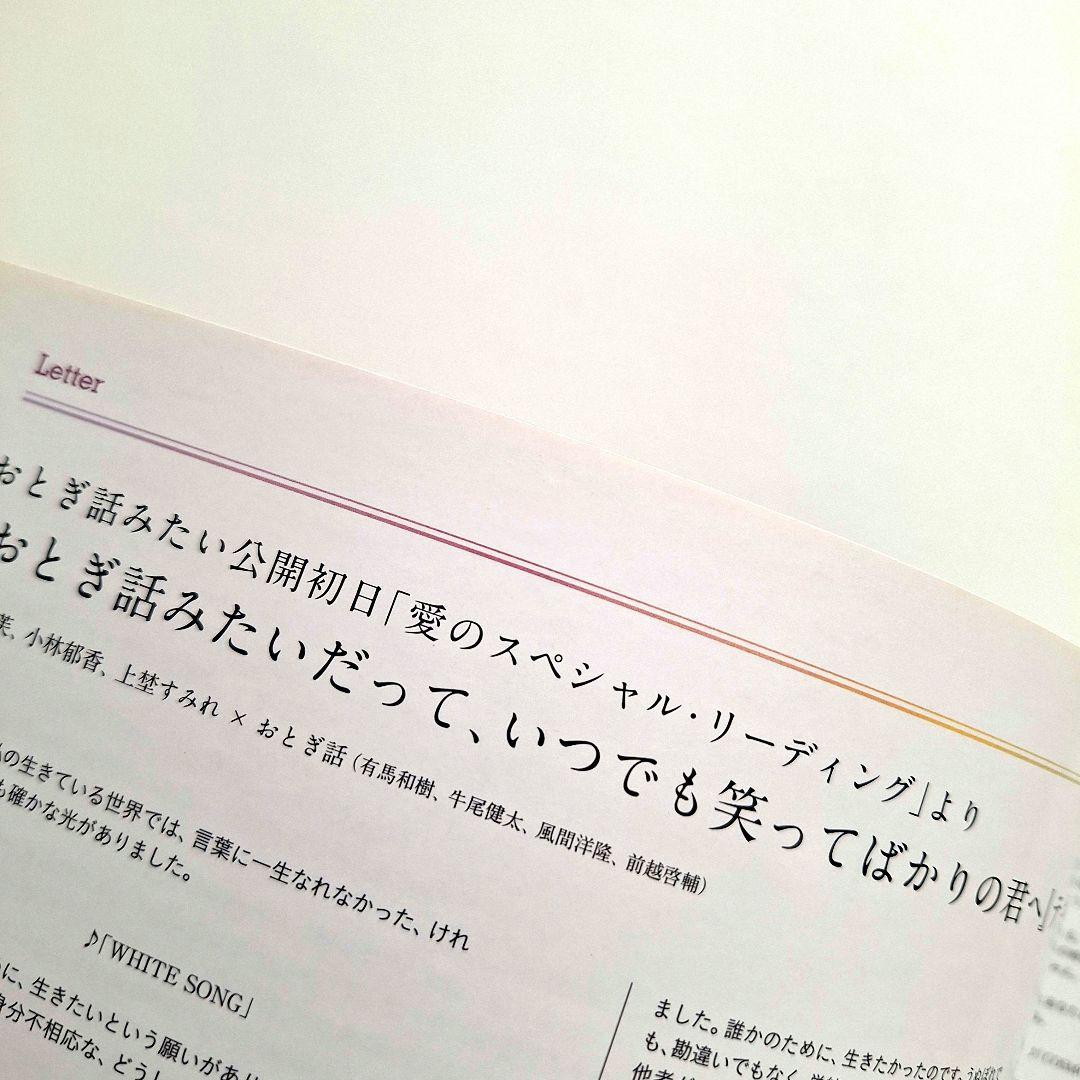 Letter
おとぎ話みたい公開初日「愛のスペシャル・リーディング」より
おとぎ話みたいだって、いつでも笑ってばかりの君へ』
小林郁香、上埜すみれ × おとぎ話（有馬和樹、牛尾健太、風間洋隆、前越啓輔）
の生きている世界では、言葉に一生なれなかった、けれ
も確かな光がありました。
♪「WHITE SONG」
に、生きたいという願いがあり
身分不相応な、どうし
ました。誰かのために、生きたかったのです。うぬぼれで
も、勘違いでもなく、
他者が